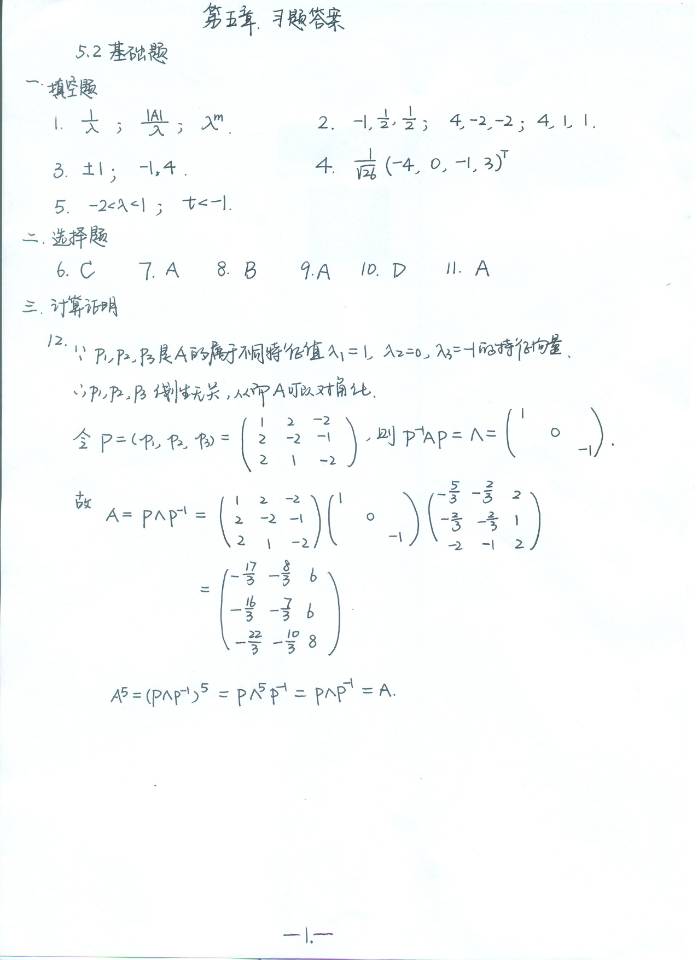 第五章. 习题答案
5.2 基础题
一. 填空题
1. 1/λ ; |A|/λ ; λ^m. 2. -1, 1/2, 1/2 ; 4, -2, -2 ; 4, 1, 1.
3. ±1 ; -1, 4. 4. 1/√26 (-4, 0, -1, 3)^T
5. -2<λ<1 ; t<-1.
二. 选择题
6. C 7. A 8. B 9. A 10. D 11. A
三. 计算证明
12. ∵ p₁, p₂, p₃是A的属于不同特征值λ₁=1, λ₂=0, λ₃=-1的特征向量.
∴ p₁, p₂, p₃ 线性无关, 从而A可以对角化.
令 P=(p₁, p₂, p₃) = (1 2 -2; 2 -2 -1; 2 1 -2), 则 P⁻¹AP = Λ = (1 0 -1).
故 A = PΛP⁻¹ = (1 2 -2; 2 -2 -1; 2 1 -2)(1 0 -1)(-5/3 -2/3 2; -2/3 -2/3 1; -2 -1 2)
= (-17/3 -8/3 6; -16/3 -7/3 6; -22/3 -10/3 8)
A⁵ = (PΛP⁻¹)⁵ = PΛ⁵P⁻¹ = PΛP⁻¹ = A.
—1.—